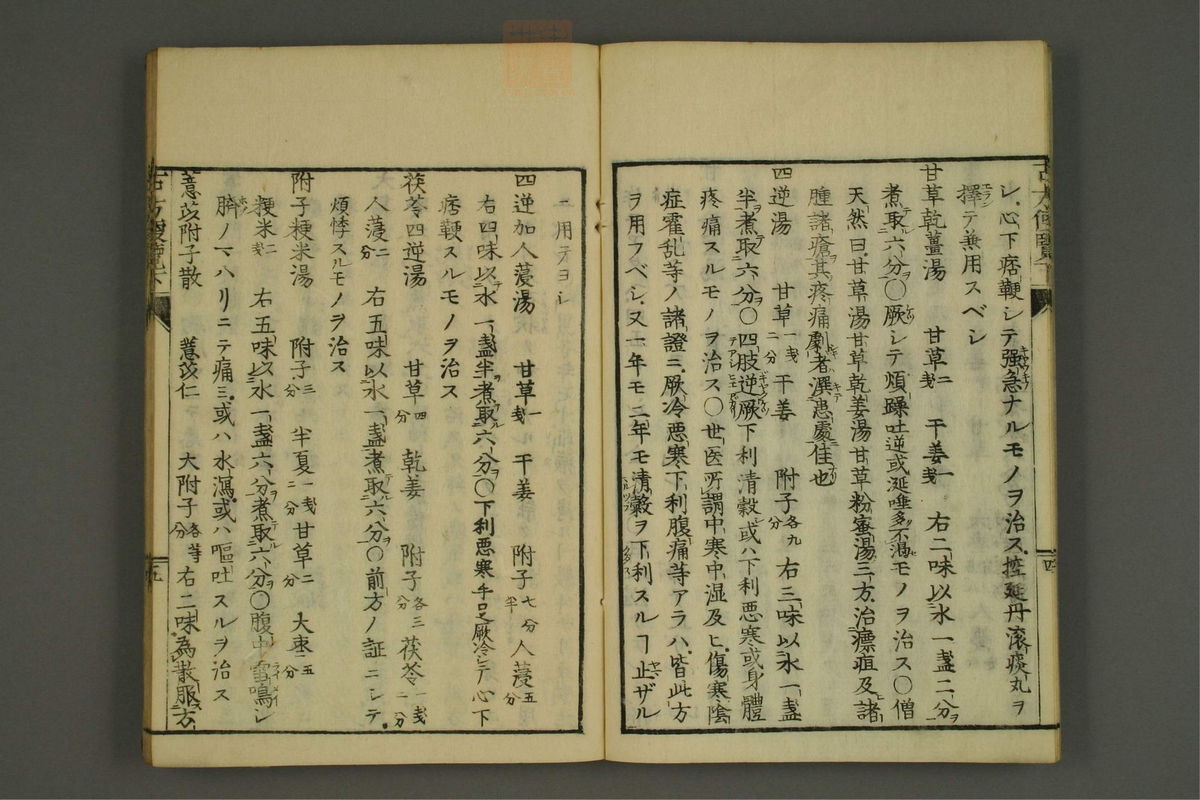 シ、心下痞鞕シテ强急ナルモノヲ治ス、控延丹滚痰丸ヲ
擇テ兼用スベシ
甘草乾薑湯 甘草二戔 干姜一戔 右二味以水一盞二分ヲ
煮取六分○厥シテ煩躁吐逆或涎唾多不渴モノヲ治ス○僧
天然曰甘草湯甘草乾姜湯甘草粉蜜湯三方治瘭疽及諸
腫諸瘡其疼痛劇者潩患處佳也
四逆湯 甘草一戔二分 干姜 附子各九分 右三味以水一盞
半煮取六分○四肢逆厥下利清穀或ハ下利悪寒或身體
疼痛スルモノヲ治ス○世医所謂中寒中湿及ヒ傷寒陰
症霍乱等ノ諸證ニ厥冷悪寒下利腹痛等アラハ皆此方
ヲ用フベシ、又一年モ二年モ清穀ヲ下利スルヿ止ザル
ニ用テヨシ
四逆加人薓湯 甘草一戔 干姜 附子七分半 人薓五分
右四味以水一盞半煮取六分○下利悪寒手足厥冷シテ心下
痞鞕スルモノヲ治ス
茯苓四逆湯 甘草四分 乾姜 附子各三分 茯苓一戔二分
人薓二分 右五味以水一盞煮取六分○前方ノ証ニシテ
煩悸スルモノヲ治ス
附子粳米湯 附子三分 半夏一戔二分 甘草二分 大棗五分
粳米二戔 右五味以水一盞六分煮取六分○腹中雷鳴シ
臍ノマハリニテ痛ミ或ハ水瀉或ハ嘔吐スルヲ治ス
薏苡附子散 薏苡仁 大附子各等分 右二味為散服方